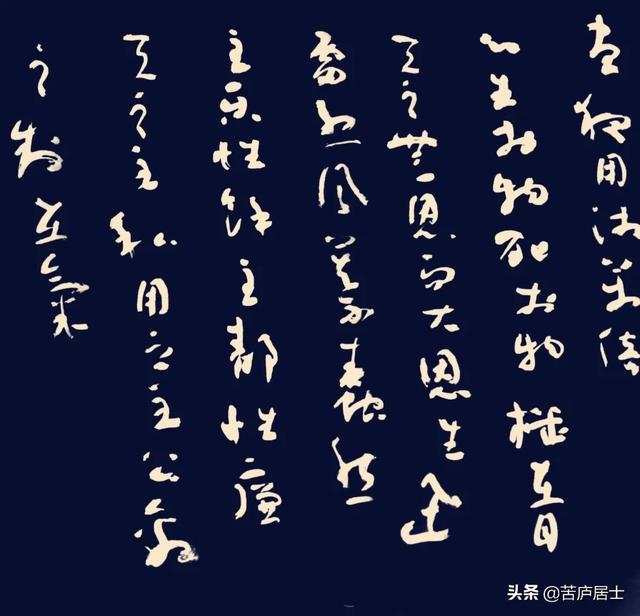 晝夜用師萬倍
心生於物死於物機在目
天之無恩而大恩生迅
雷烈風莫不蠢然
至樂性餘至靜性廉
天之至私用之至公禽
之制在氣
头条 @苦庐居士